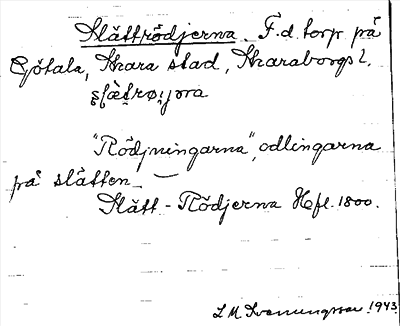 Slättrödjerna. F.d. torp på
Götala, Skara stad, Skaraborgs l.
"Rödjningarna", odlingarna
på slätten
Slätt-Rödjerna Hfl. 1800.
L M Svenungsson 1943